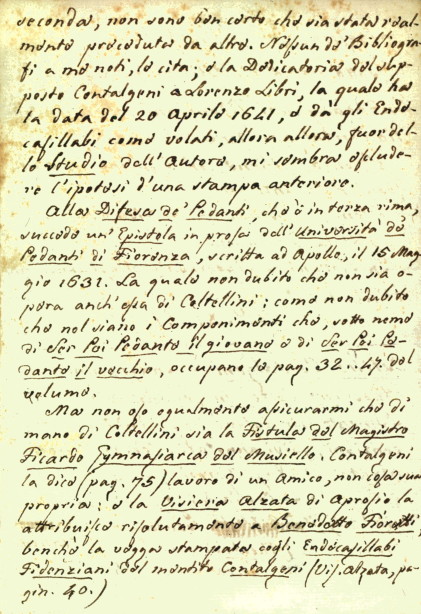 seconda, non sono ben certo che sia stata real-
mente preceduta da altre. Nessun de' Bibliogra-
fi a me noti, la cita; e la Dedicatoria del sup-
posto Contalgeni a Lorenzo Libri, la quale ha
la data del 20 Aprile 1641, e dà gli Ende-
casillabi come volati, allora allora, fuor del-
lo studio dell'Autore, mi sembra esclude-
re l'ipotesi d'una stampa anteriore.
Alla Difesa de' Pedanti, che è in terza rima,
succede un'Epistola in prosa dell'Università de'
Pedanti di Fiorenza, scritta ad Apollo, il 15 Mag-
gio 1631. La quale non dubito che non sia o-
pera anch'essa di Coltellini; come non dubito
che nol siano i Componimenti che, sotto nome
di Ser Poi Pedante il giovane e di Ser Poi Pe-
dante il vecchio, occupano le pag. 32..47. del
volume.
Ma non oso egualmente assicurarmi che di
mano di Coltellini sia la Fistula del Magistro
Ficardo Gymnasiarca del Musiello. Contalgeni
la dice (pag. 75) lavoro di un Amico, non cosa sua
propria: e la Visiera Alzata di Aprosio la
attribuisce risolutamente a Benedetto Fioretti,
benchè la vegga stampata cogli Endecasillabi
Fidenziani del mentito Contalgeni (Vis. Alzata, pa-
gin. 40.)